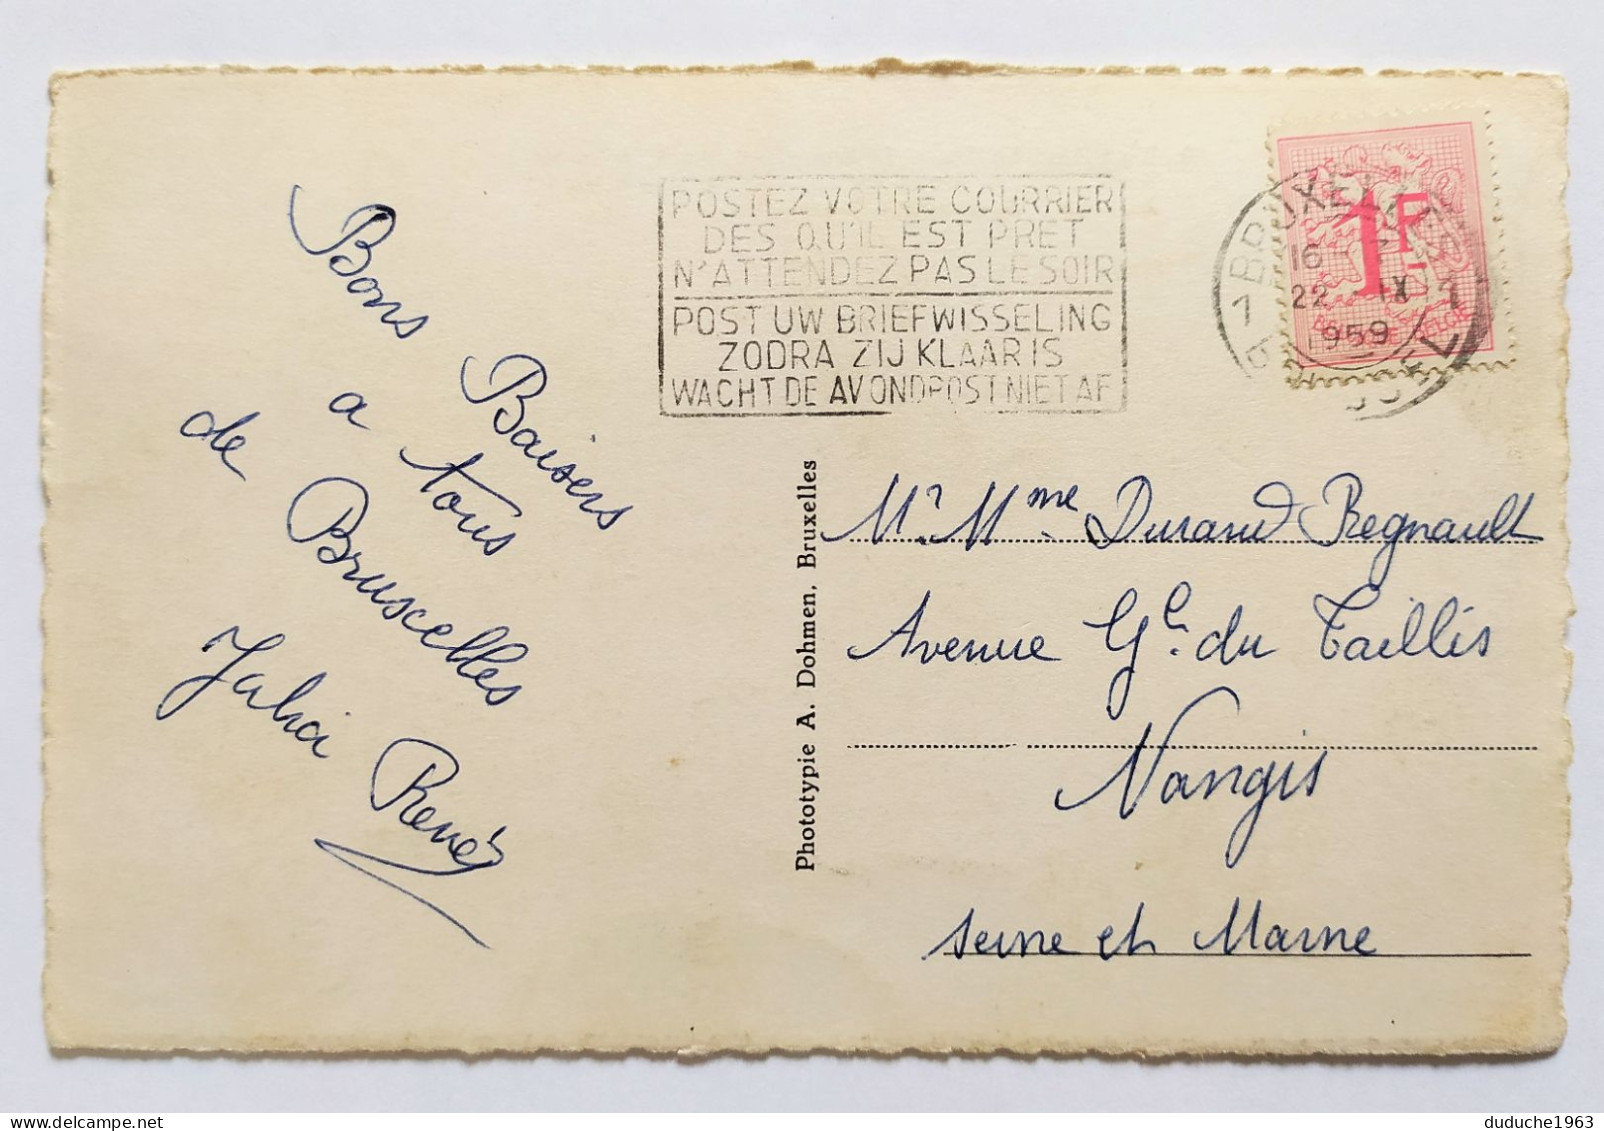 POSTEZ VOTRE COURRIER
DES QU'IL EST PRET
N'ATTENDEZ PAS LE SOIR
POST UW BRIEFWISSELING
ZODRA ZIJ KLAAR IS
WACHT DE AVONDPOST NIET AF
1 BRUXELLES 1
16
22 IX
1959
1F
BELGIE
Bons Baisers
a tous
de Bruxcelles
René
Phototypie A. Dohmen, Bruxelles
Mr. Mme Durand Regnault
Avenue Gl. du Taillis
Nangis
Seine et Marne
duduche1963